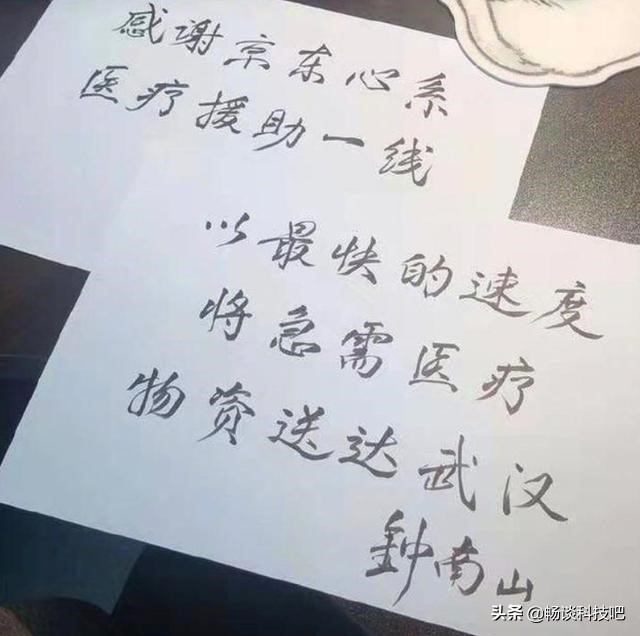 感谢京东心系
医疗援助一线
以最快的速度
将急需医疗
物资送达武汉
鍾南山
头条 @畅谈科技吧